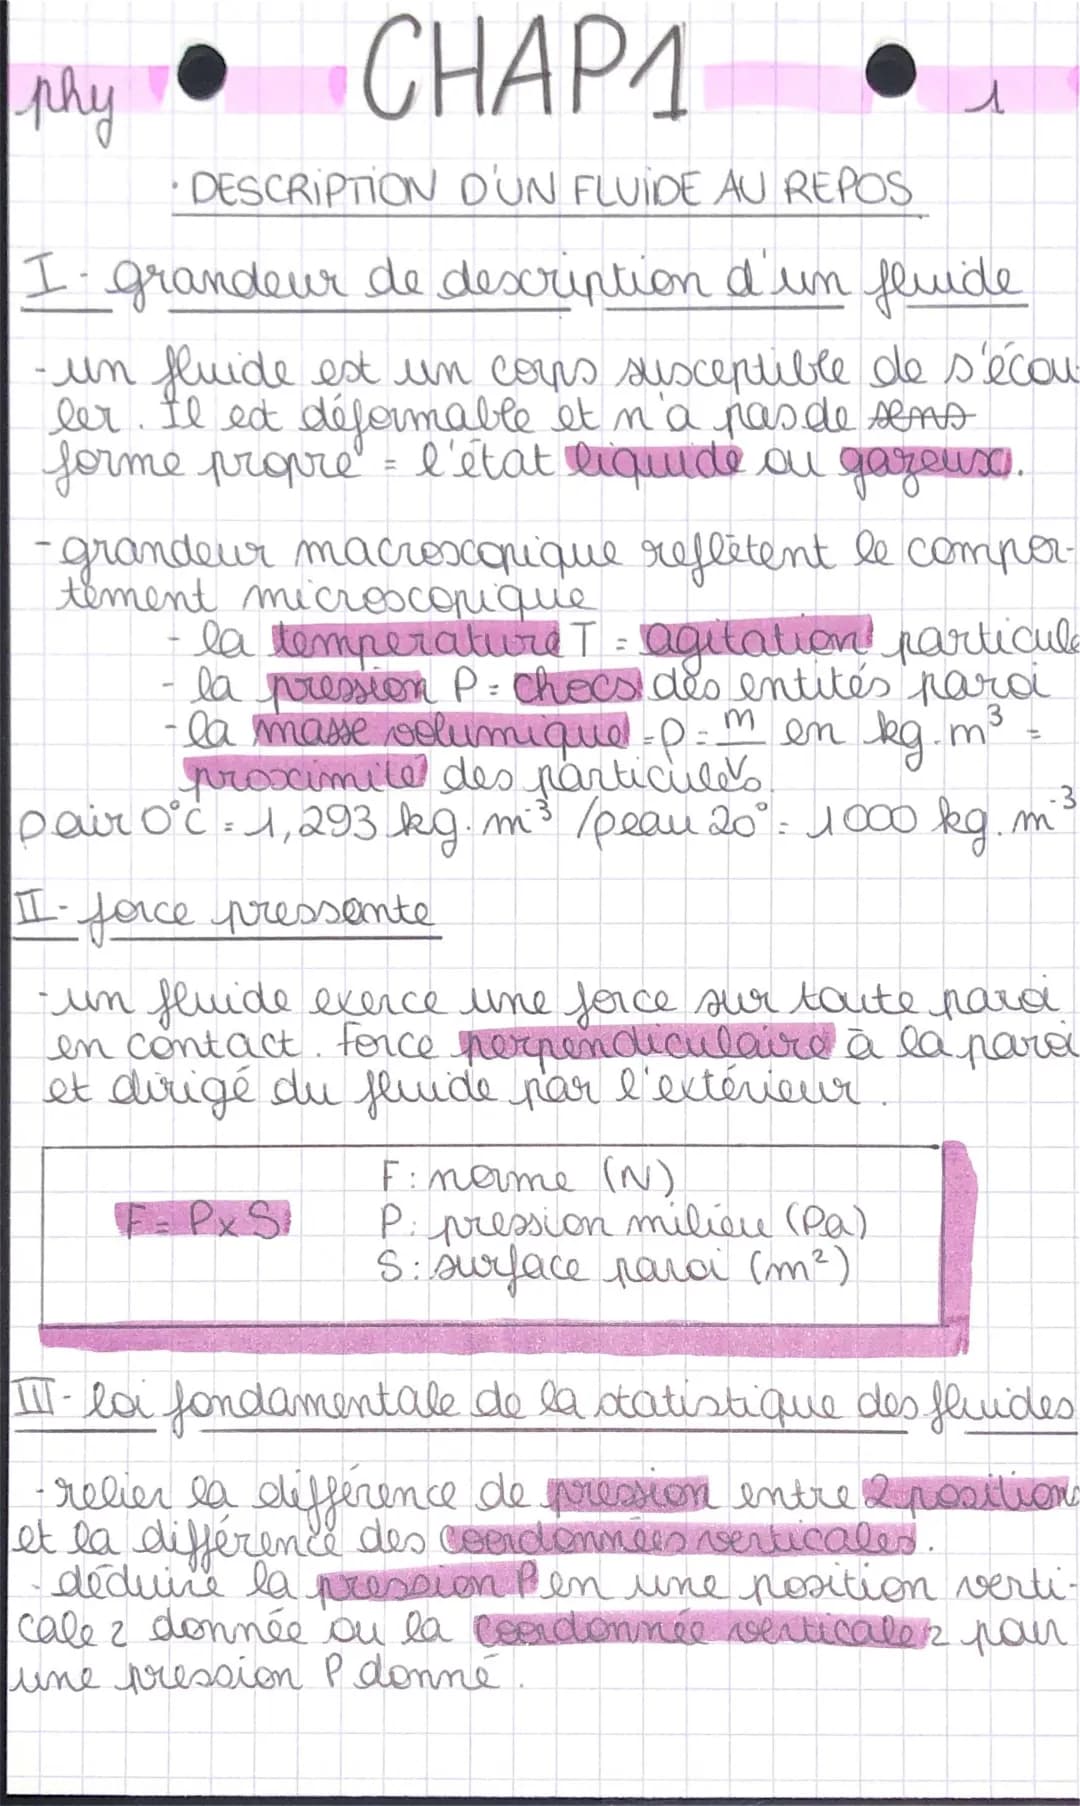 phy CHAP1 1
· DESCRIPTION D'UN FLUIDE AU REPOS
I - grandeur de description d'un fluide
- un fluide est un corps susceptible de s'écou-
ler. Il est déformable et n'a pas de
forme propre = l'état liquide ou gazeux.
- grandeur macroscopique reflètent le compor-
tement microscopique
- la temperature T = agitation particule
- la pression P = chocs des entités paroi
- la masse volumique = ρ = m/V en kg.m³ =
proximité des particules
ρ air 0°C = 1,293 kg.m⁻³ / ρeau 20° = 1000 kg.m⁻³
II - force pressante
- un fluide exerce une force sur toute paroi
en contact. Force perpendiculaire à la paroi
et dirigé du fluide par l'extérieur.
F : norme (N)
F = P x S P : pression milieu (Pa)
S : surface paroi (m²)
III - loi fondamentale de la statistique des fluides
- relier la différence de pression entre 2 positions
et la différence des coordonnées verticales.
- déduire la pression P en une position verti-
cale z donnée ou la coordonnée verticale z pour
une pression P donné.